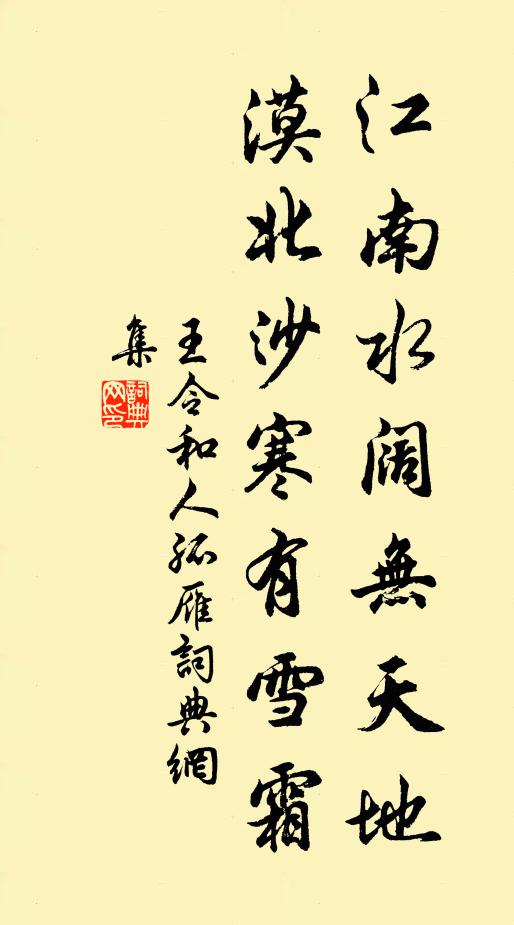 江南水阔無天地
漠北沙寒有雪霜
王令和人孤雁詞典網
集
詞典
网印